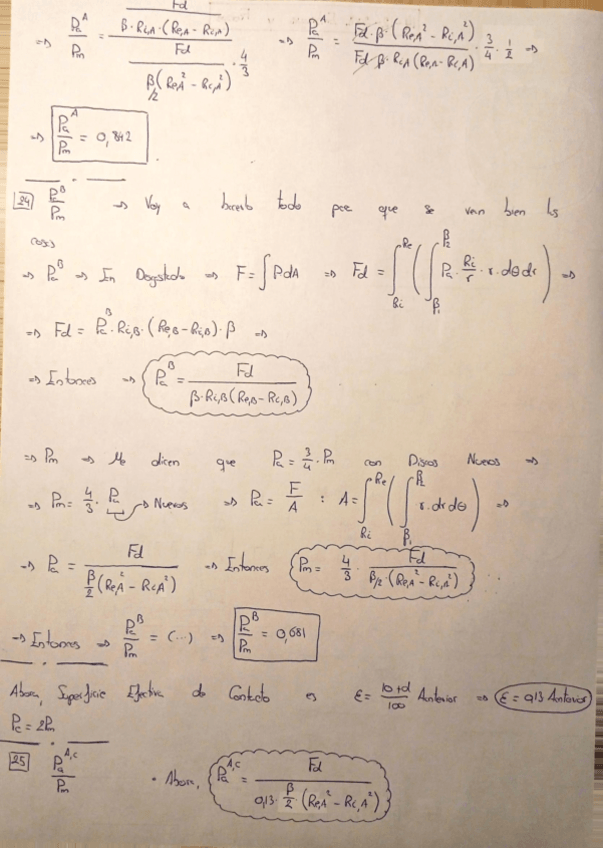 ⇒ Pa^A / Pm = (Fd / (β·Ri,A·(Re,A - Ri,A))) / (Fd / (β/2 (Re,A² - Ri,A²)) · 4/3) ⇒ Pa^A / Pm = (Fd·β·(Re,A² - Ri,A²)) / (Fd·β·Ri,A (Re,A - Ri,A)) · 3/4 · 1/2 ⇒
⇒ Pa^A / Pm = 0,842
24 Pa^B / Pm ⇒ Voy a hacerlo todo para que se vean bien las
cosas
⇒ Pa^B ⇒ En Desgastado ⇒ F = ∫ P dA ⇒ Fd = ∫_Ri^Re ( ∫_β1^β2 Pa · Ri/r · r · dθ dr ) ⇒
⇒ Fd = Pa^B · Ri,B · (Re,B - Ri,B) · β ⇒
⇒ Entonces ⇒ Pa^B = Fd / (β·Ri,B (Re,B - Ri,B))
⇒ Pm ⇒ Me dicen que Pa = 3/4 · Pm con Discos Nuevos ⇒
⇒ Pm = 4/3 · Pa → Nuevos ⇒ Pa = F/A : A = ∫_Ri^Re ( ∫_β1^β2 r · dr dθ ) ⇒
⇒ Pa = Fd / (β/2 (Re,A² - Ri,A²)) ⇒ Entonces Pm = 4/3 · Fd / (β/2 · (Re,A² - Ri,A²))
⇒ Entonces ⇒ Pa^B / Pm = (...) ⇒ Pa^B / Pm = 0,681
Ahora, Superficie Efectiva de Contacto es ε = (10+d)/100 Anterior ⇒ ε = 0,13 Anterior
Pc = 2Pm
25 Pa^A,c / Pm · Ahora, Pa^A,c = Fd / (0,13 · β/2 · (Re,A² - Ri,A²))